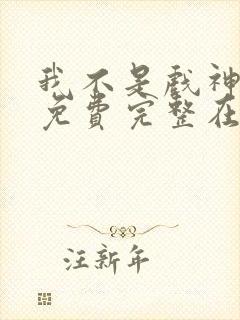 我不是戏神
免费完整在
汪新年